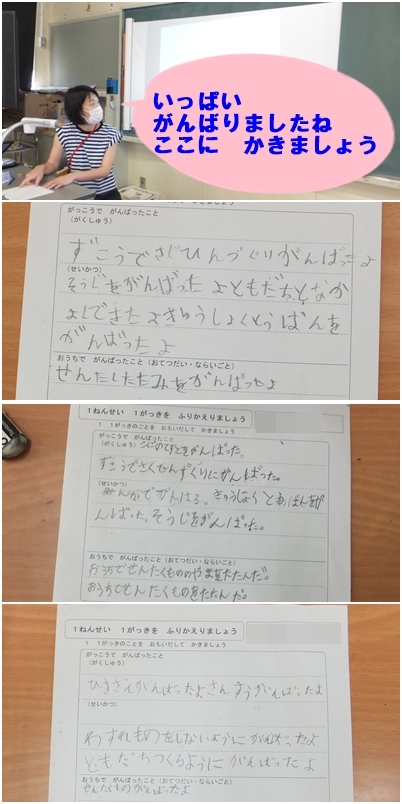 いっぱい
がんばりましたね
ここに かきましょう
がっこうで がんばったこと
(がくしゅう)
ずこうでさじひんづくりがんばったよ
(せいかつ)
そうじをがんばったよともだちとなか
よくできたよきゅうしょくとうばんを
がんばったよ
おうちで がんばったこと(おてつだい・ならいごと)
せんたくたたみをがんばったよ
1ねんせい 1がっきを ふりかえりましょう
1 1がっきのことを おもいだして かきましょう
がっこうで がんばったこと
(がくしゅう)
てすとをがんばった。
ずこうでさくひんづくりにがんばった。
(せいかつ)
みんなでがんばる。きゅうしょくとおばんをが
んばった。そうじをがんばった。
おうちで がんばったこと(おてつだい・ならいごと)
おうちでせんたくもののやまをたたんだ。
おうちでせんたくものをたたんだ。
1ねんせい 1がっきを ふりかえりましょう
1 1がっきのことを おもいだして かきましょう
がっこうで がんばったこと
(がくしゅう)
ひきざんがんばったよさんすうがんばったよ
(せいかつ)
わすれものをしないようにがんばったよ
ともだちつくるようにがんばったよ
おうちで がんばったこと(おてつだい・ならいごと)
せんたくものがんばったよ